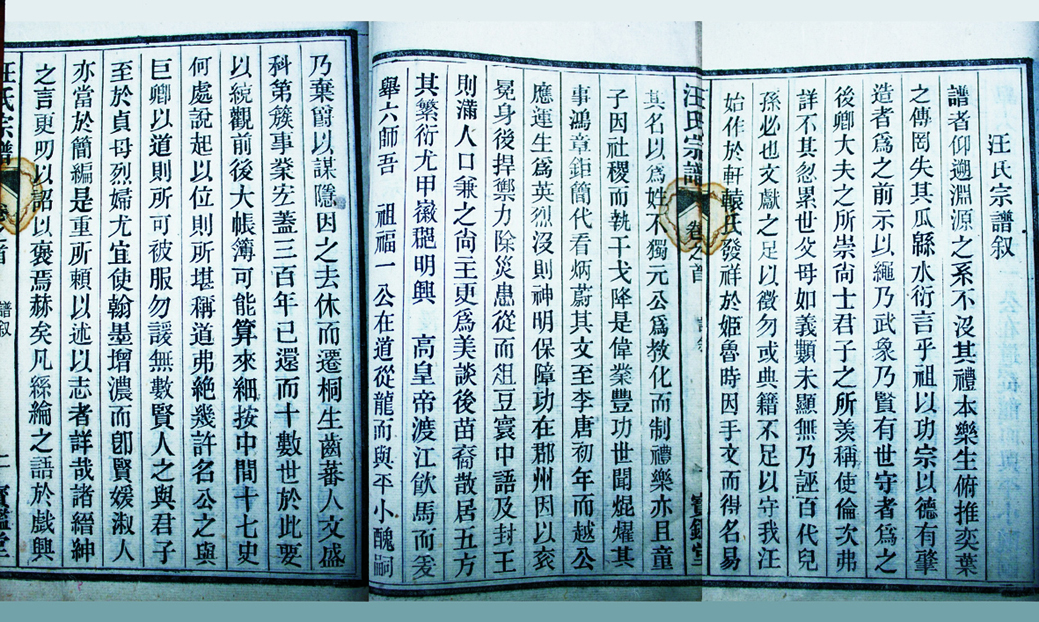 汪氏宗譜叙
譜者仰遡淵源之系不沒其禮本樂生俯推奕葉
之傳罔失其瓜緜水衍言乎祖以功宗以德有肇
造者爲之前示以繩乃武象乃賢有世守者爲之
後卿大夫之所崇尙士君子之所羡稱使倫次弗
詳不其忽累世父母如義顙未顯無乃誣百代兒
孫必也文獻之足以徵勿或典籍不足以守我汪
始作於軒轅氏發祥於姬魯時因手文而得名易
汪氏宗譜
卷之首
譜叙
寶鑑堂
其名以爲姓不獨元公爲教化而制禮樂亦且童
子因社稷而執干戈降是偉業豐功世聞焜燿其
事鴻章鉅簡代看炳蔚其文至李唐初年而越公
應運生爲英烈沒則神明保障功在郡州因以衮
冕身後捍禦力除災患從而俎豆寰中語及封王
則滿人口兼之尙主更爲美談後苗裔散居五方
其繁衍尤甲嶶𥠖明興 高皇帝渡江飮馬而爰
舉六師吾 祖福一公在道從龍而與平小醜嗣
乃棄爵以謀隱因之去休而遷桐生齒蕃人文盛
科第簇事業宏蓋三百年已還而十數世於此要
以統觀前後大帳簿可能算來細按中間十七史
何處說起以位則所堪稱道弗絶幾許名公之與
巨卿以道則所可被服勿諼無數賢人之與君子
至於貞母烈婦尤宜使翰墨增濃而卽賢媛淑人
亦當於簡編是重所頼以述以志者詳哉諸縉紳
之言更叨以詔以褒焉赫矣凡絲綸之語於戲興
汪氏宗譜
卷之首
譜叙
二
寶鑑堂